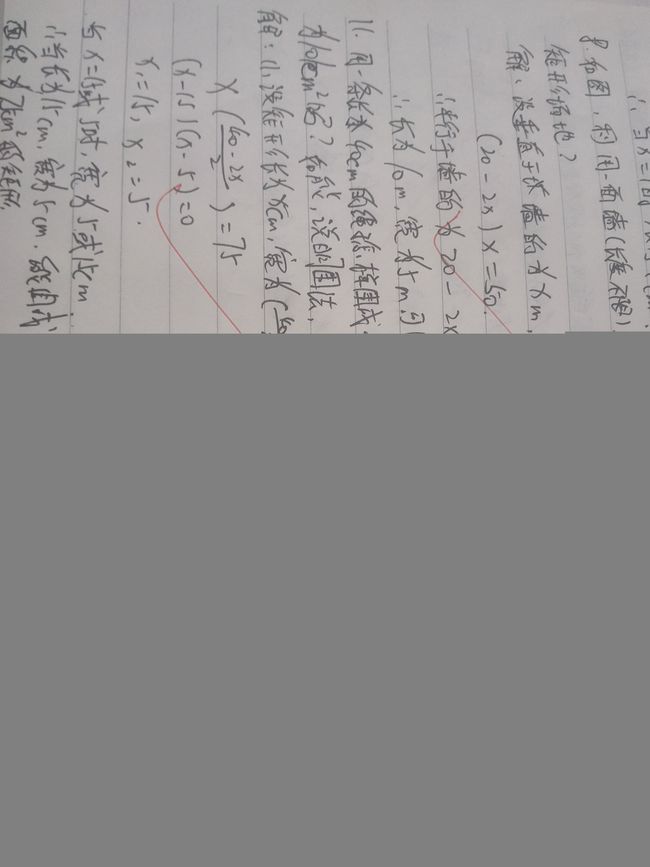 8. 如图,利用一面墙(长度不限)
矩形场地?
解:设垂直于墙的为xm,
(20-2x)x=50.
∴平行于墙的为20-2x
∴长为10m,宽为5m.
11. 用一条长为40cm的绳子,
为101cm²吗?若能,说明围法,
解:(1)设矩形长为xcm,宽为(40
x(40-2x/2)=75
(x-15)(x-5)=0
x₁=15,x₂=5.
当x=15或5时,宽为5或15cm.
∴当长为15cm,宽为5cm.能围成
面积为75cm²的矩形.